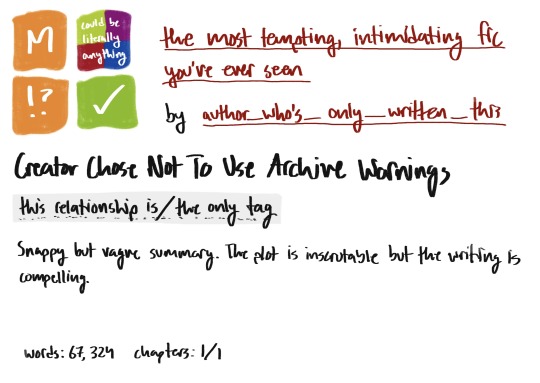 M
could be
literally
anything
!?
the most tempting, intimidating fic
you've ever seen
by author_who's_only_written_this
Creator Chose Not To Use Archive Warnings
this relationship is/the only tag
Snappy but vague summary. The plot is inscrutable but the writing is
compelling.
words: 67,324 chapters: 1/1